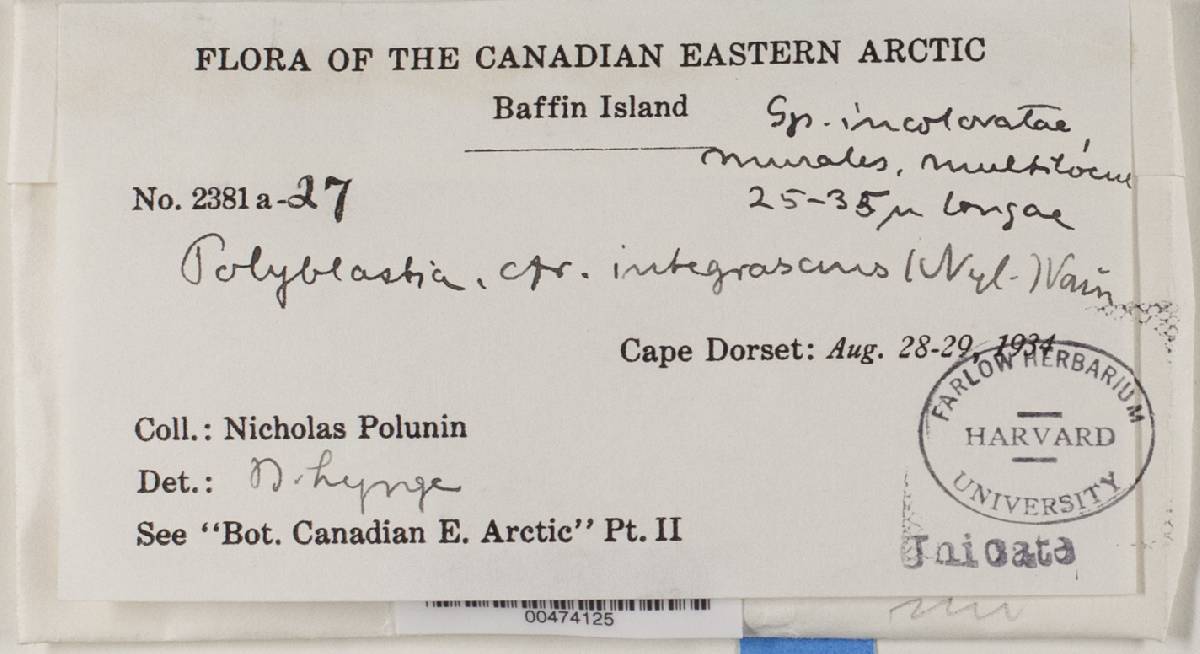 FLORA OF THE CANADIAN EASTERN ARCTIC
Baffin Island
Sp. incoloratae,
murales, multilocul
25-35 µ longae
No. 2381 a-27
Polyblastia. cfr. integrascens (Nyl.) Vain
Cape Dorset: Aug. 28-29, 1934
Coll.: Nicholas Polunin
Det.: B. Lynge
See "Bot. Canadian E. Arctic" Pt. II
FARLOW HERBARIUM
HARVARD
UNIVERSITY
Unicata
00474125